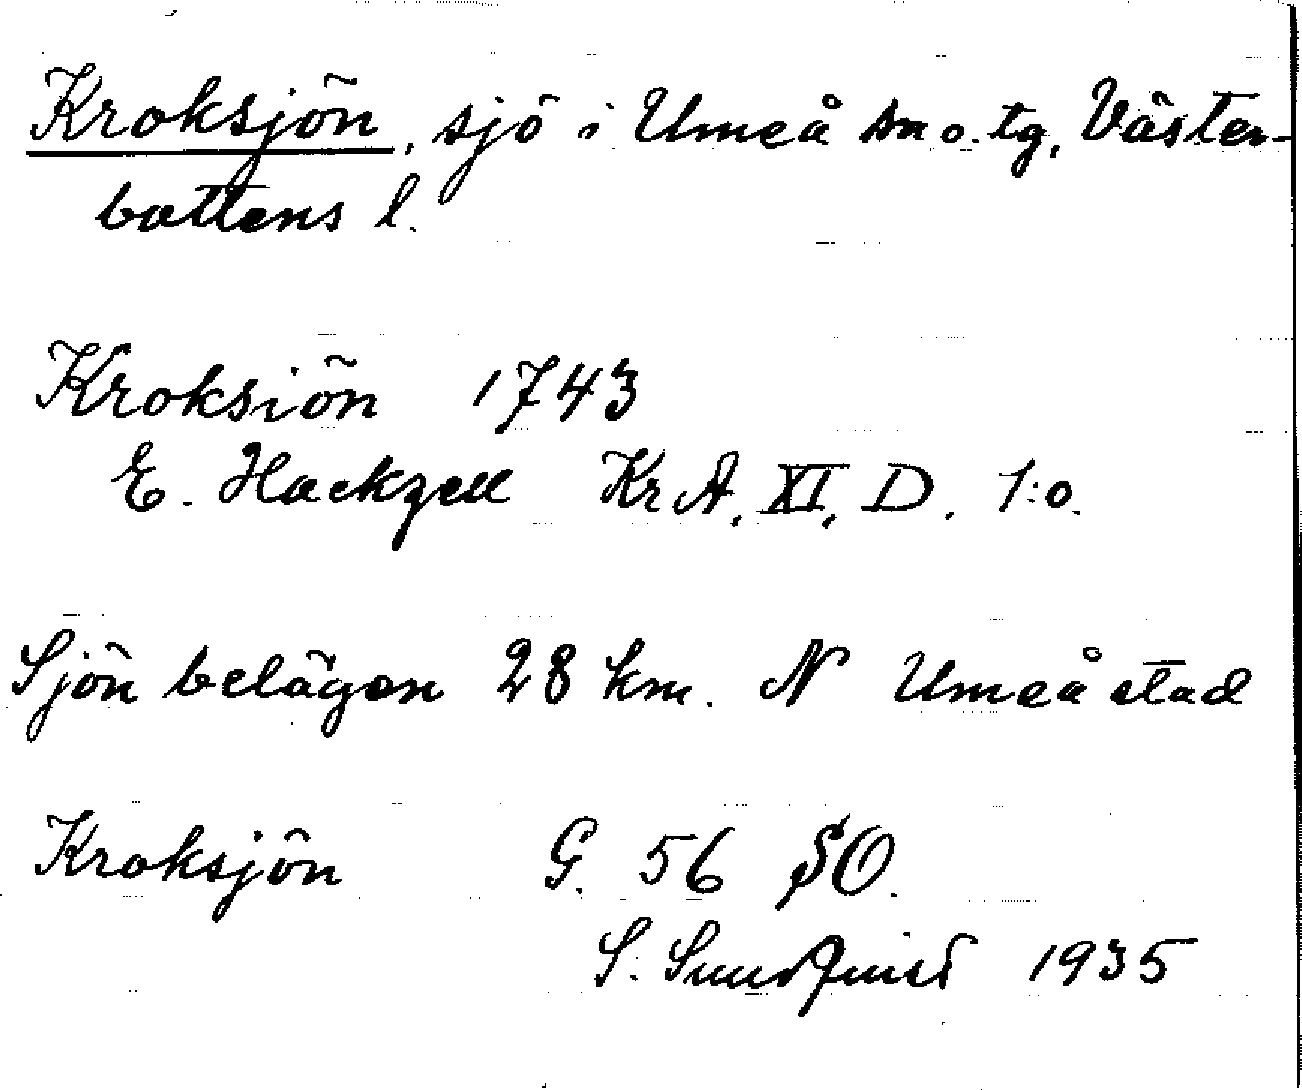 Kroksjön, sjö i Umeå sn o. tg, Väster-
bottens l.
Kroksiön 1743
E. Hackzell Kr A. XI, D. 1:o.
Sjön belägen 28 km. N Umeå stad
Kroksjön G. 56 SO.
S. Sundquist 1935